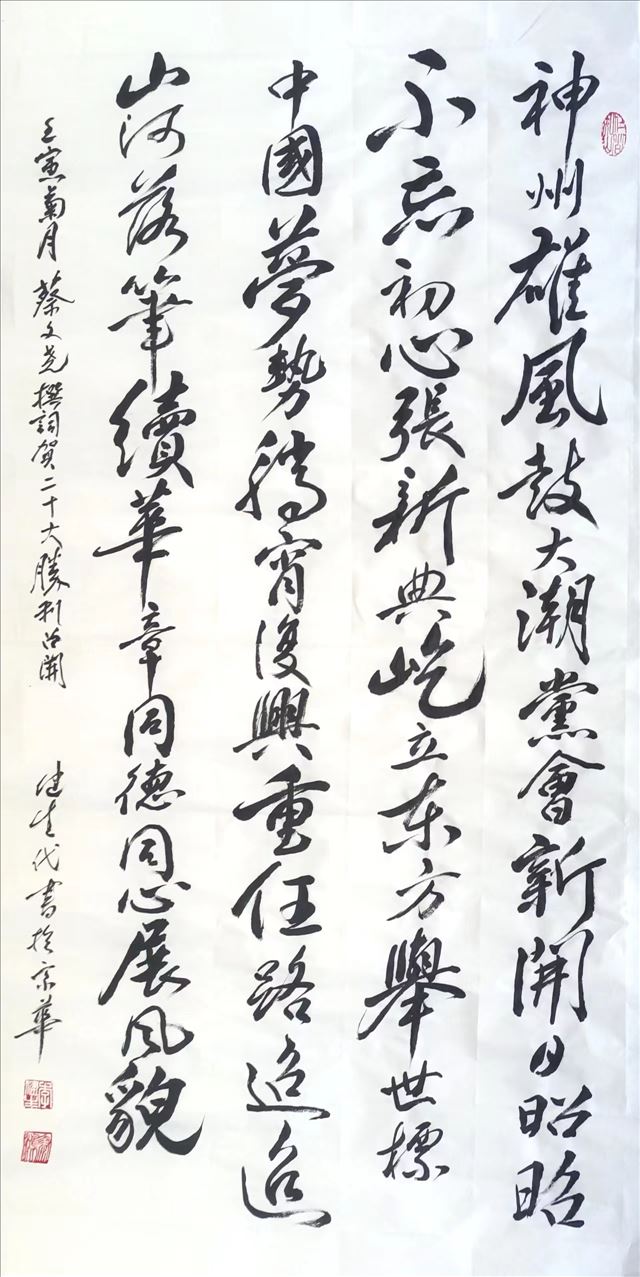 神州雄風鼓大潮黨會新開日昭昭
不忘初心張新典屹立东方舉世標
中國夢勢騰宵復興重任路迢迢
山河落筆續華章同德同心展风貌
壬寅菊月蔡文尧撰詞賀二十大勝利召開
建生代書於京華